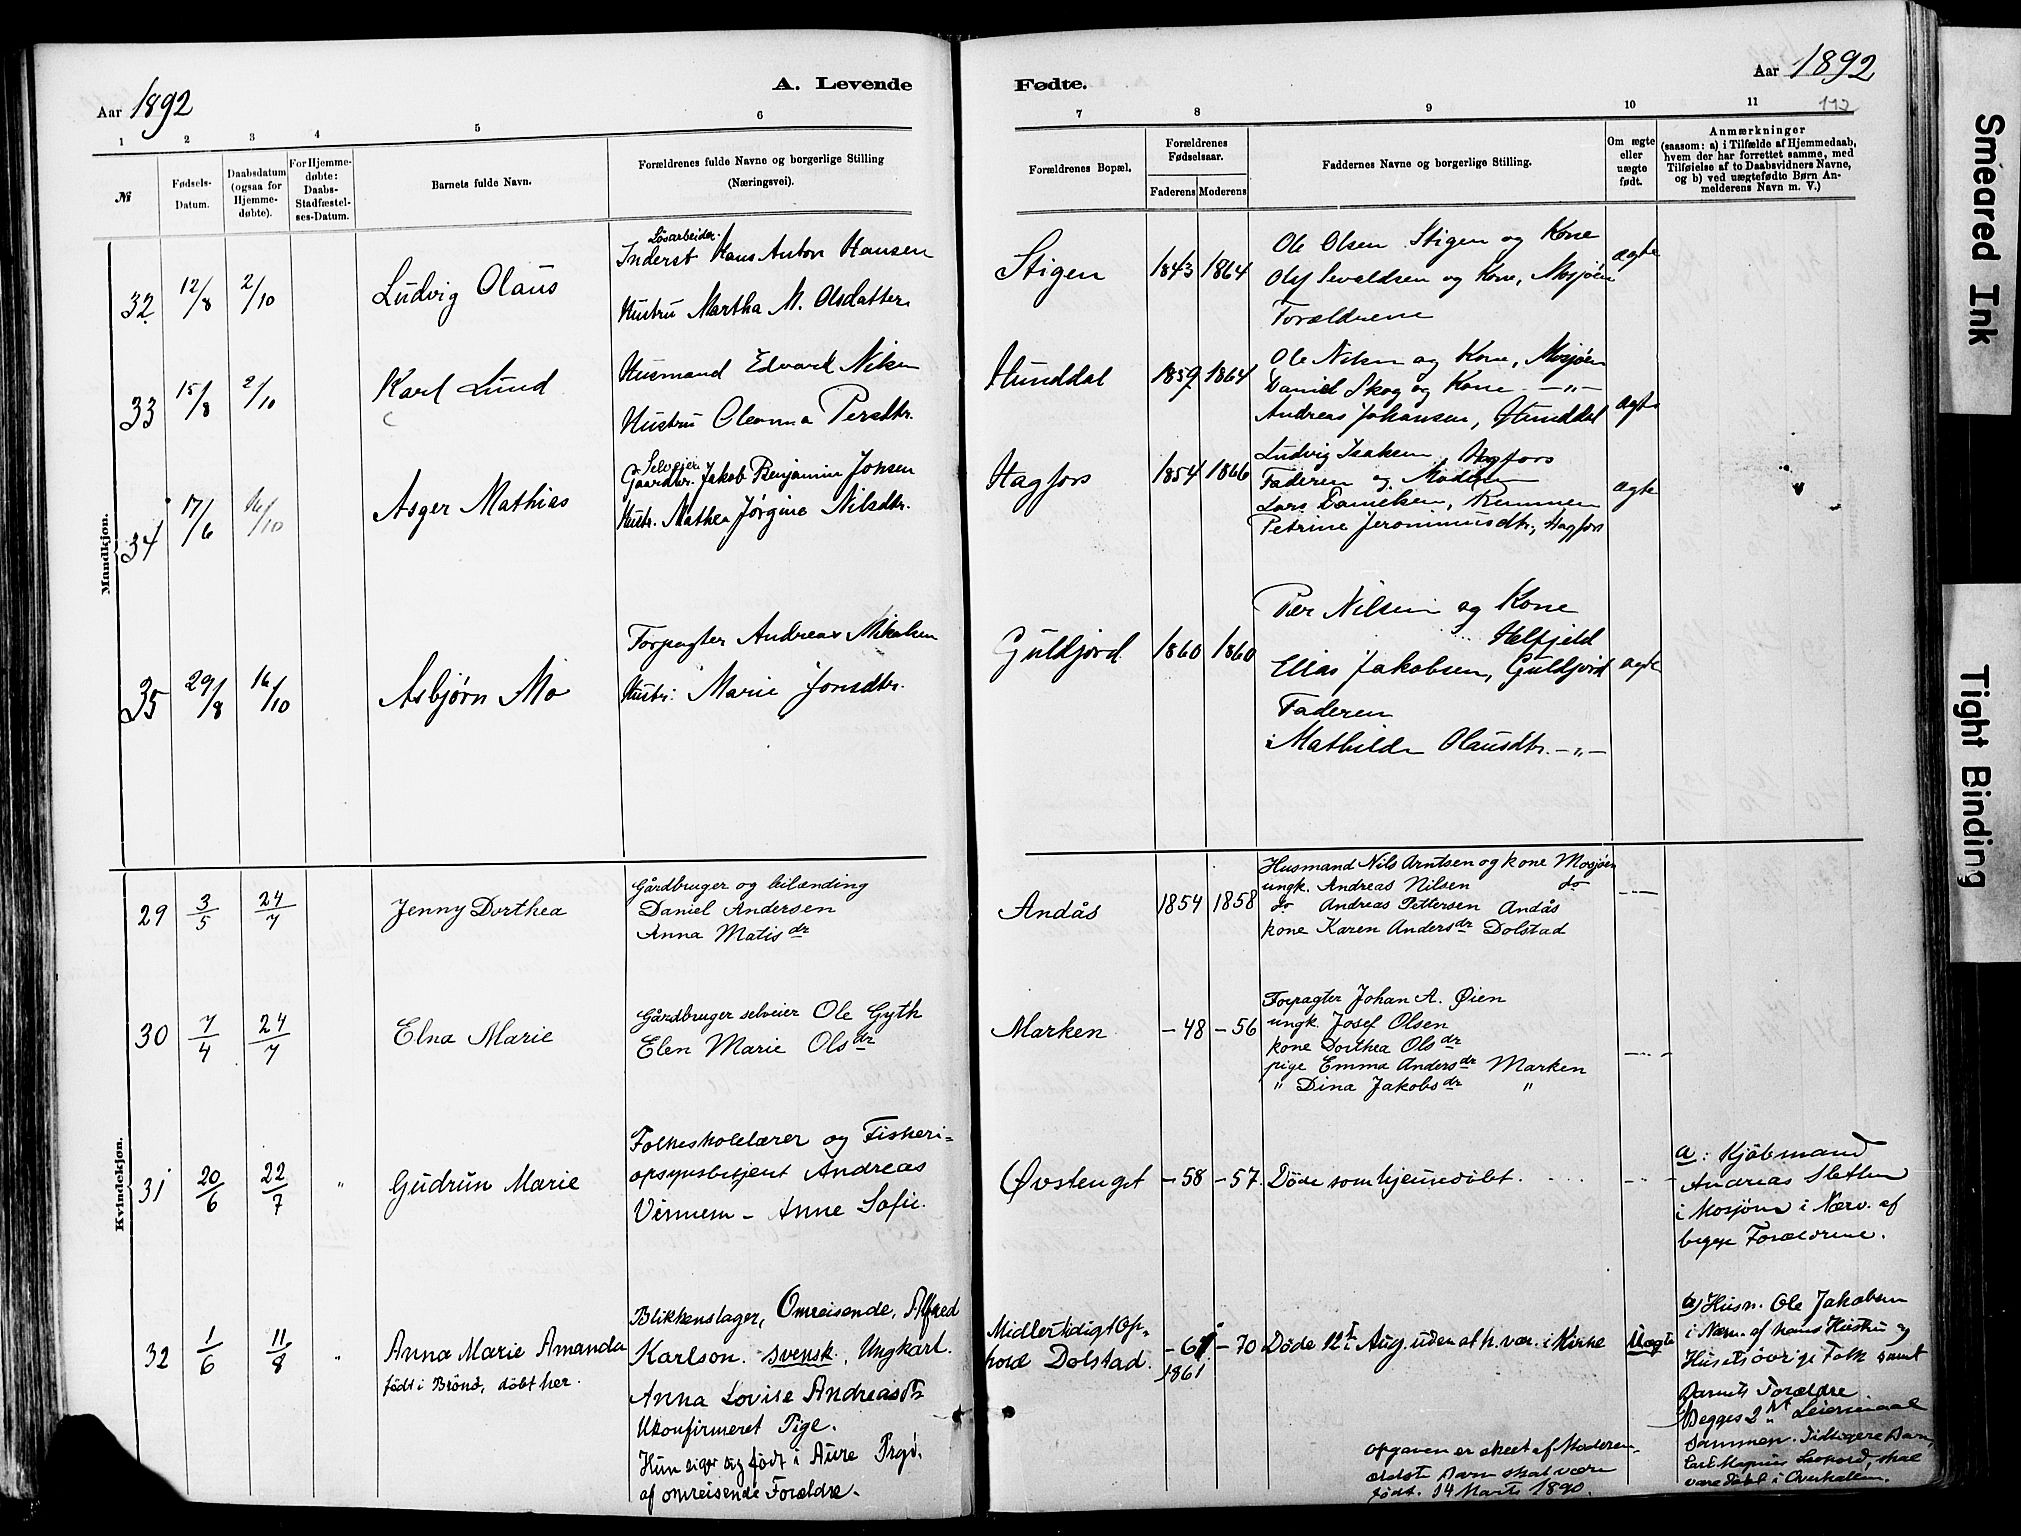 Aar 1892
A. Levende
1 2 3 4 5 6
№
Fødsels-
Datum.
Daabsdatum
(ogsaa for
Hjemme-
døbte).
For Hjemme-
døbte:
Daabs-
Stadfæstel-
ses-Datum.
Barnets fulde Navn.
Forældrenes fulde Navne og borgerlige Stilling
(Næringsvei).
Mandkjøn.
32 12/8 2/10 Ludvig Olaus
Løsarbeider.
Inderst Hans Anton Hansen
Hustru Martha M. Olsdatter
33 15/8 2/10 Karl Lund
Husmand Edvard Nilsen
Hustru Oleanna Persdtr.
34 17/6 16/10 Asger Mathias
Selveier
Gaardbr. Jakob Benjamin Jonsen
Hustr. Mathea Jørgine Nilsdtr.
35 29/8 16/10 Asbjørn Mo
Forpagter Andreas Mikalsen
Hustr: Marie Jonsdtr.
Kvindekjøn.
29 3/5 24/7 Jenny Dorthea
Gårdbruger og leilænding
Daniel Andersen
Anna Matisdr
30 7/4 24/7 Elna Marie
Gårdbruger selveier Ole Gyth
Elen Marie Olsdr
31 20/6 22/7 " Gudrun Marie
Folkeskolelærer og Fiskeri=
opsynsbetjent Andreas
Vinnem – Anne Sofie.
32 1/6 11/8 " Anna Marie Amanda
født i Brønø, døbt her.
Blikkenslager, Omreisende, Alfred
Karlson. svensk, Ungkarl.
Anna Lovise Andreasdtr
Ukonfirmeret Pige.
Hun siger sig født i Aure Prgd.
af omreisende Forældre.
Fødte.
Aar 1892
112
7 8 9 10 11
Forældrenes Bopæl.
Forældrenes
Fødselsaar.
Faderens Moderens
Faddernes Navne og borgerlige Stilling.
Om ægte
eller
uægte
født.
Anmærkninger
(saasom: a) i Tilfælde af Hjemmedaab,
hvem der har forrettet samme, med
Tilføielse af to Daabsvidners Navne,
og b) ved uægtefødte Børn An-
melderens Navn m. V.)
Stigen 1843 1864
Ole Olsen Stigen og Kone
Olof Sevaldsen og Kone, Mosjøen
Forældrene
ægte
Hunddal 1859 1864
Ole Nilsen og Kone, Mosjøen
Daniel Skog og Kone —"—
Andreas Johansen, Hunddal
ægte
Hagfors 1854 1866
Ludvig Isaksen, Hagfors
Faderen og Moderen
Lars Danielsen, Remmen
Petrine Jeronimusdtr, Hagfors
ægte
Guldjord 1860 1860
Per Nilsen og Kone
Helfjeld
Elias Jakobsen, Guldjord
Faderen
Mathilde Olausdtr. —"—
ægte
Andås 1854 1858
Husmand Nils Arntsen og kone Mosjøen
ungk. Andreas Nilsen do
do Andreas Pettersen Andås
kone Karen Andersdr Dolstad
Marken – 48 – 56
Forpagter Johan A. Øien
ungk. Josef Olsen
kone Dorthea Olsdr
pige Emma Andersdr Marken
" Dina Jakobsdr "
Øvstenget – 58 – 57. Døde som hjemmedøbt.
a: Kjøbmand
Andreas Sletten
i Mosjøen i Nærv. af
begge Forældrene.
Midlertidigt Op=
hold Dolstad. – 61 – 70
1861
Døde 12te Aug. uden at h. vær. i Kirke
Uægte
a) Husm. Ole Jakobsen
i Nærv. af hans Hustru og
Husets øvrige Folk samt
Barnets Forældre.
Begges 2det Leiermaal
sammen. Tidligere Barn,
Carl Magnus Leonard, skal
være døbt i Overhallen.
Opgaven er skeet af Moderen.
Ældste Barn skal være
født. 14 Marts 1890.
Smeared Ink
Tight Binding